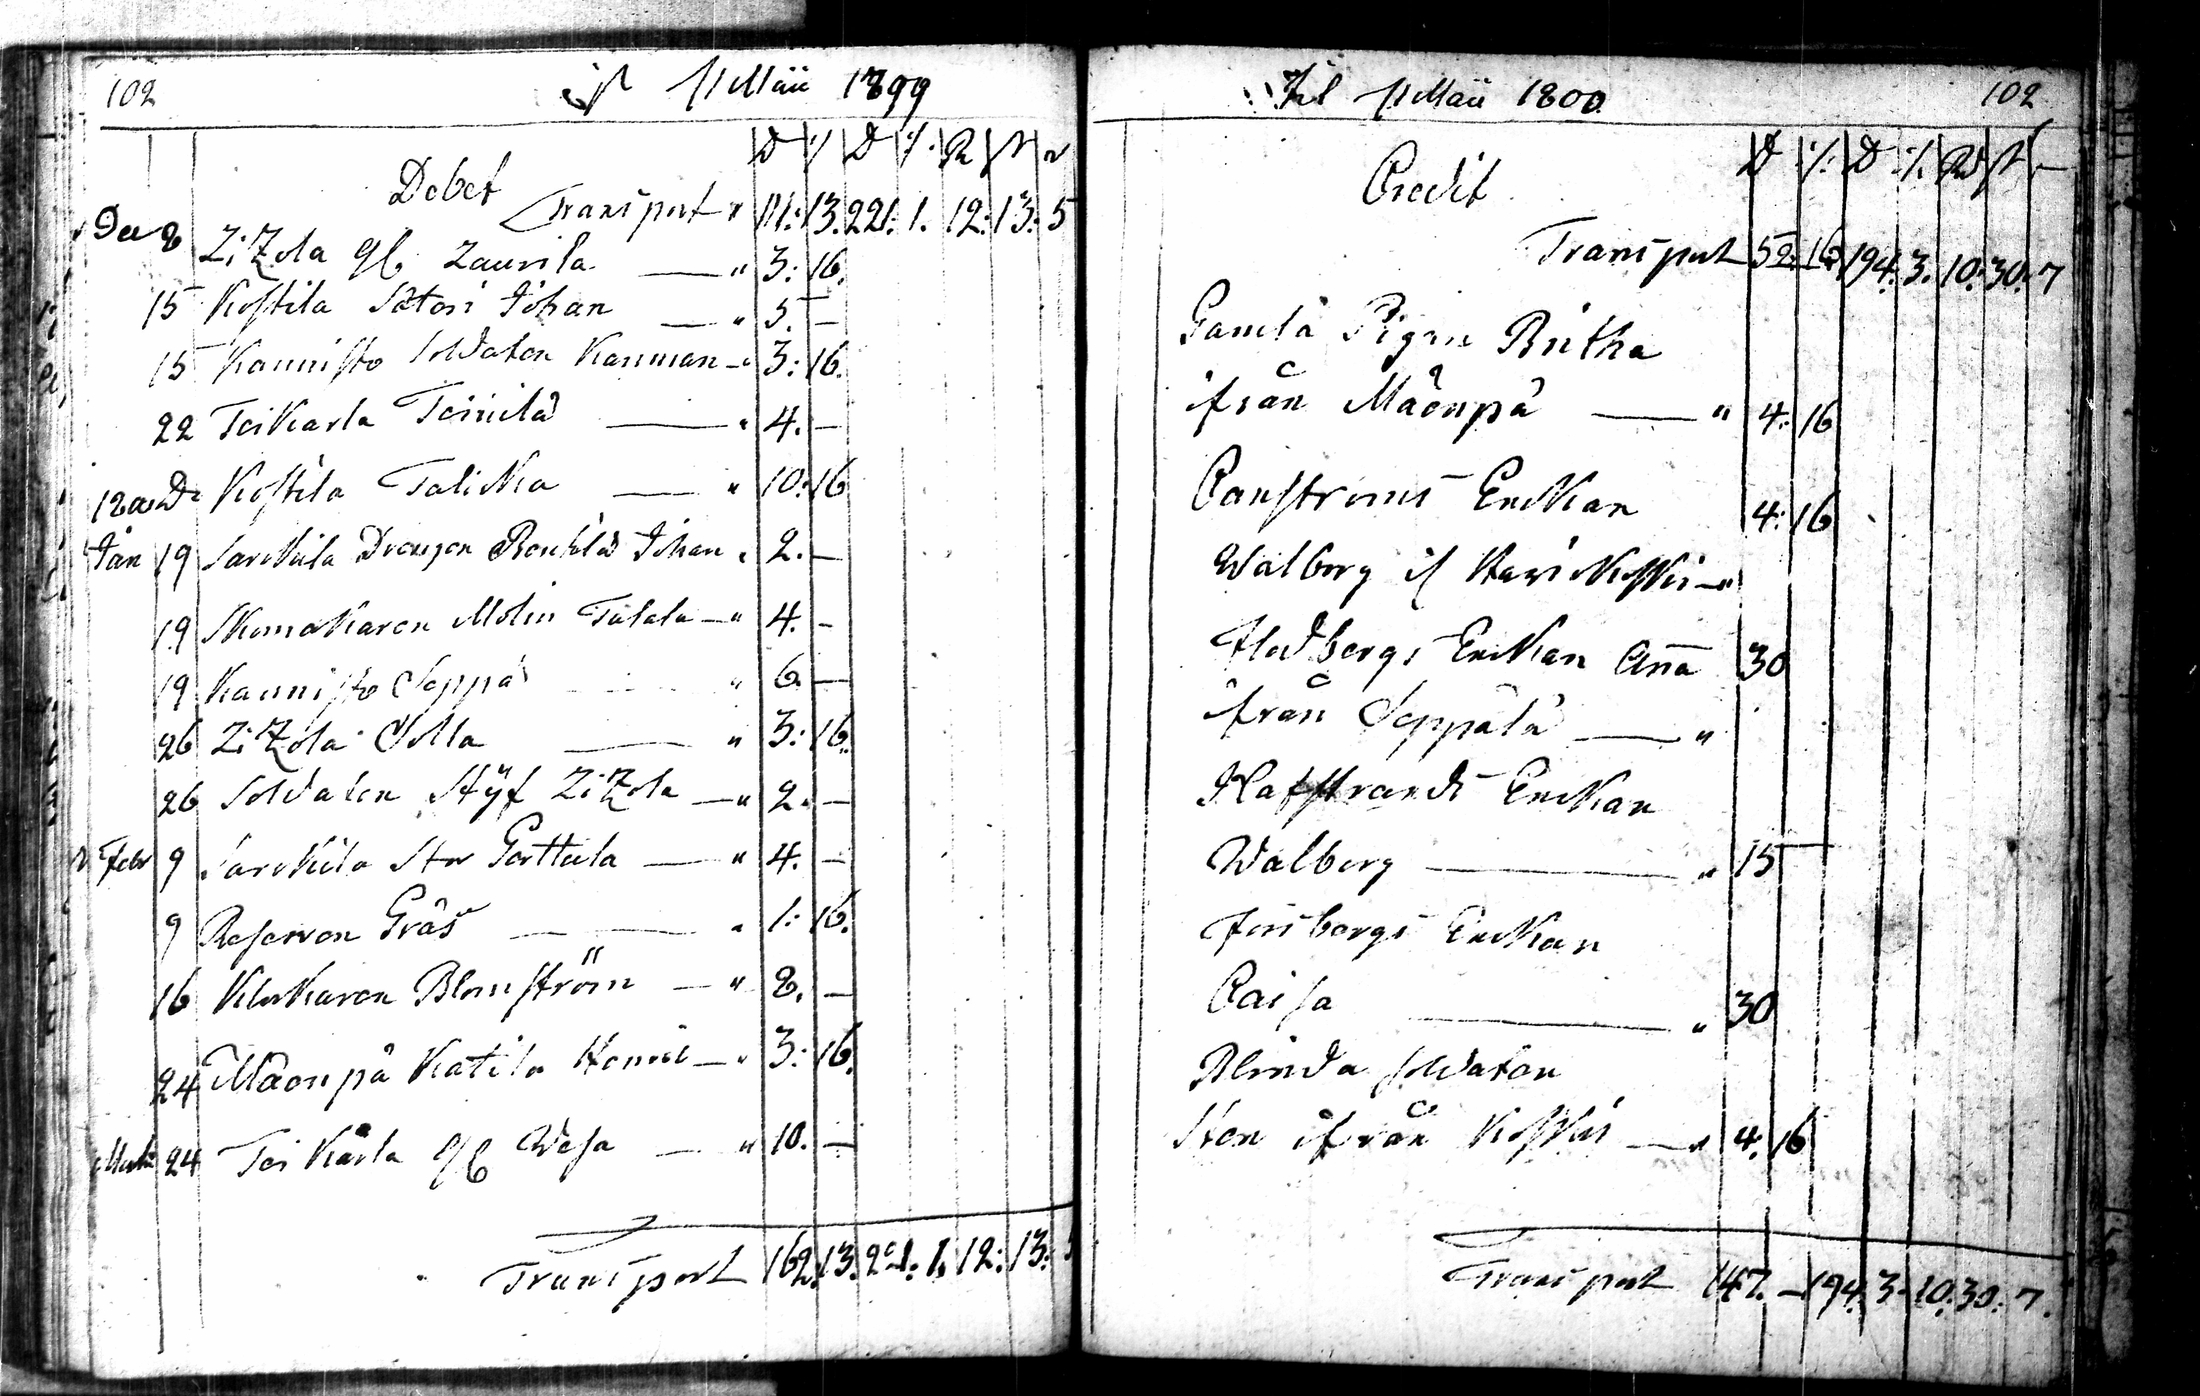 102 if 1 Maii 1799
D :/. D :/. R S r
Debet
Transport " 111: 13. 221: 1. 12: 13: 5
Dec 8 Zizola gl Laurila — " 3: 16.
15 Kostila Johan — " 5. —
15 Kannisto Soldaten Kanman — " 3: 16.
22 Teikarla Teinilä — " 4. —
Kostila Talikka — " 10: 16
Jan 19 Sarkkila Dragon Johan " 2. —
19 Skomakaren Molin Talala — " 4. —
19 Kannisto Seppä " 6. —
26 Zizola Olla — " 3: 16.
26 Soldaten Styf Zizola — " 2. —
Febr 9 Sarkkila Stor Perttula — " 4. —
9 Reserven Gräs — " 1: 16.
16 Klokaren Blomström — " 8. —
24 Mäenpä Katila Henric — " 3: 16.
Martii 24 Teikarla gl Wesa — " 10. —
Transport 162. 13. 221. 1. 12: 13: 5
Til 1 Maii 1800. 102
D :/. D :/. Rd S —
Credit
Transport 52. 16. 194. 3. 10. 30. 7
Gamla Pigan Britha
ifrån Mäenpä — " 4: 16
Enckan 4: 16
Walborg if — "
Hedbergs Enckan Anna 30
ifrån Seppälä — "
Hafstrands Enckan
Walborg — " 15 —
Forsbergs Enckan
Caisa — " 30
Blinda soldaten
Sten ifrån Koskis — " 4: 16
Transport 147. — 194. 3. 10. 30. 7.